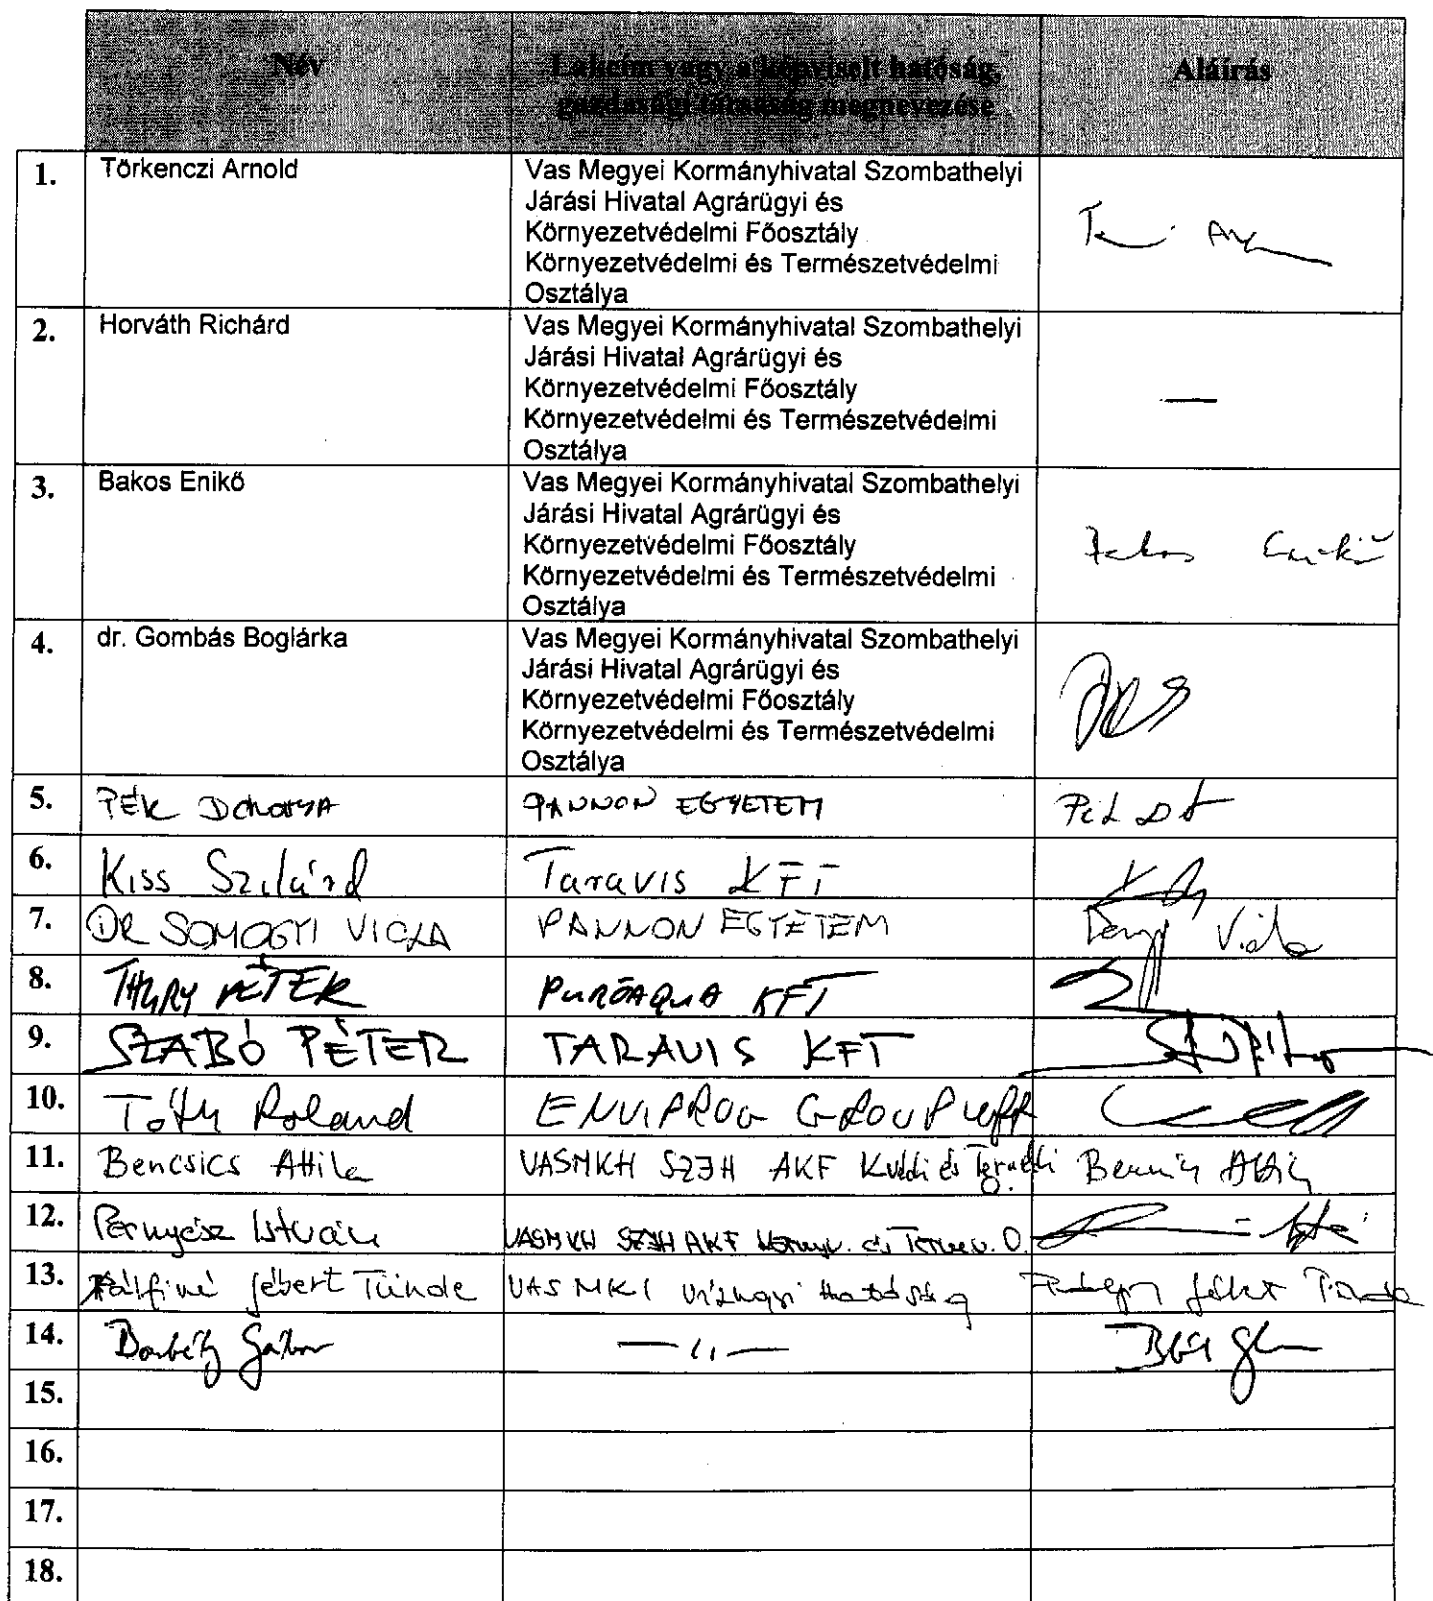 Név
Lakcím vagy a képviselt hatóság,
gazdasági társaság megnevezése
Aláírás
1.
Törkenczi Arnold
Vas Megyei Kormányhivatal Szombathelyi
Járási Hivatal Agrárügyi és
Környezetvédelmi Főosztály
Környezetvédelmi és Természetvédelmi
Osztálya
2.
Horváth Richárd
Vas Megyei Kormányhivatal Szombathelyi
Járási Hivatal Agrárügyi és
Környezetvédelmi Főosztály
Környezetvédelmi és Természetvédelmi
Osztálya
—
3.
Bakos Enikő
Vas Megyei Kormányhivatal Szombathelyi
Járási Hivatal Agrárügyi és
Környezetvédelmi Főosztály
Környezetvédelmi és Természetvédelmi
Osztálya
Bakos Enikő
4.
dr. Gombás Boglárka
Vas Megyei Kormányhivatal Szombathelyi
Járási Hivatal Agrárügyi és
Környezetvédelmi Főosztály
Környezetvédelmi és Természetvédelmi
Osztálya
5.
PÉK
PANNON EGYETEM
6.
Kiss Szilárd
Taravis KFT
7.
DR SOMOGYI VIOLA
PANNON EGYETEM
Viola
8.
THURY PÉTER
PURÓAQUA KFT
9.
SZABÓ PÉTER
TARAVIS KFT
10.
Tóth Roland
ENVIPROG GROUP
11.
Bencsics Attila
VASMKH SZJH AKF
12.
Pernyész István
VASMKH SZJH AKF Környv. és Termv. O.
13.
Pálfiné Tünde
VAS MKI Vízügyi Hatóság
14.
Borbély Gábor
— 11 —
15.
16.
17.
18.